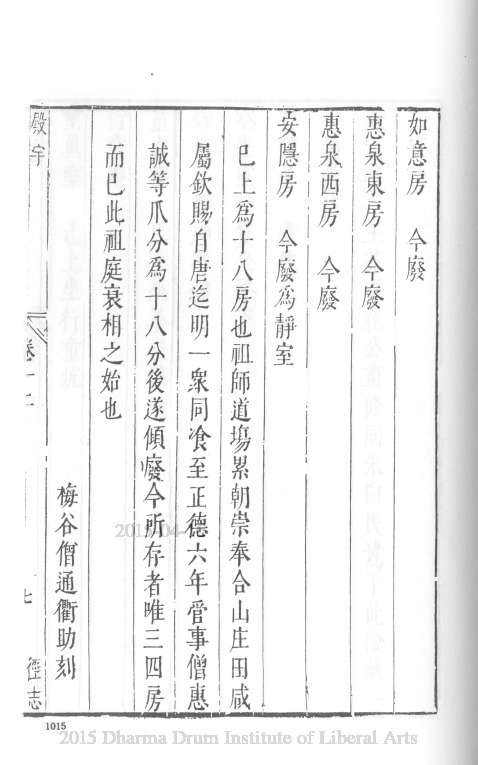 如意房　今廢
惠泉東房　今廢
惠泉西房　今廢
安隱房　今廢爲靜室
已上爲十八房也祖師道塲累朝崇奉合山庄田咸
屬欽賜自唐迄明一衆同飡至正德六年管事僧惠
誠等爪分爲十八分後遂傾廢今所存者唯三四房
而已此祖庭衰相之始也
梅谷僧通衢助刻
殿宇　卷十二　七　徑志
1015
2015 Dharma Drum Institute of Liberal Arts